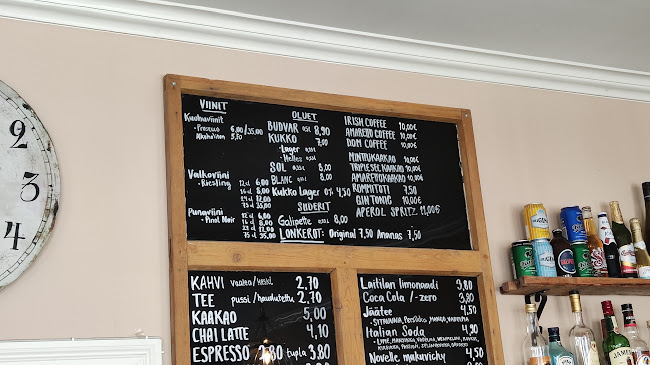 VIINIT
Kuohuviinit
- Prosecco 6,00/35,00
Alkoholiton 5,70
Valkoviini
- Riesling 12 cl 6,00
16 cl 8,00
24 cl 12,00
75 cl 35,00
Punaviini
- Pinot Noir 12 cl 6,00
16 cl 8,00
24 cl 12,00
75 cl 35,00
OLUET
BUDVAR 0,5 l 8,90
KUKKO 7,00
- Lager 0,33 l
- Helles 0,33 l
SOL 0,33 l 8,00
BLANC 8,00
Kukko Lager 0% 4,50
SIIDERIT
Galipette 8,00
LONKEROT: Original 7,50 Ananas 7,50
IRISH COFFEE 10,00€
AMARETTO COFFEE 10,00€
DOM COFFEE 10,00€
MINTTUKAAKAO 10,00€
TRIPLE SEC KAAKAO 10,00€
AMARETTOKAAKAO 10,00€
ROMMITOTI 7,50
GIN TONIC 10,00€
APEROL SPRITZ 12,00€
KAHVI vaalea/ 2,70
TEE pussi/haudutettu 2,70
KAAKAO 5,00
CHAI LATTE 4,10
ESPRESSO 2,80 tupla 3,80
Laitilan limonaadi 3,80
Coca Cola /-zero 3,80
Jäätee 4,50
- SITRUUNA, PERSIKKA, MANGO, VADELMA
Italian Soda 4,90
Novelle makuvichy 4,50
2
3
4